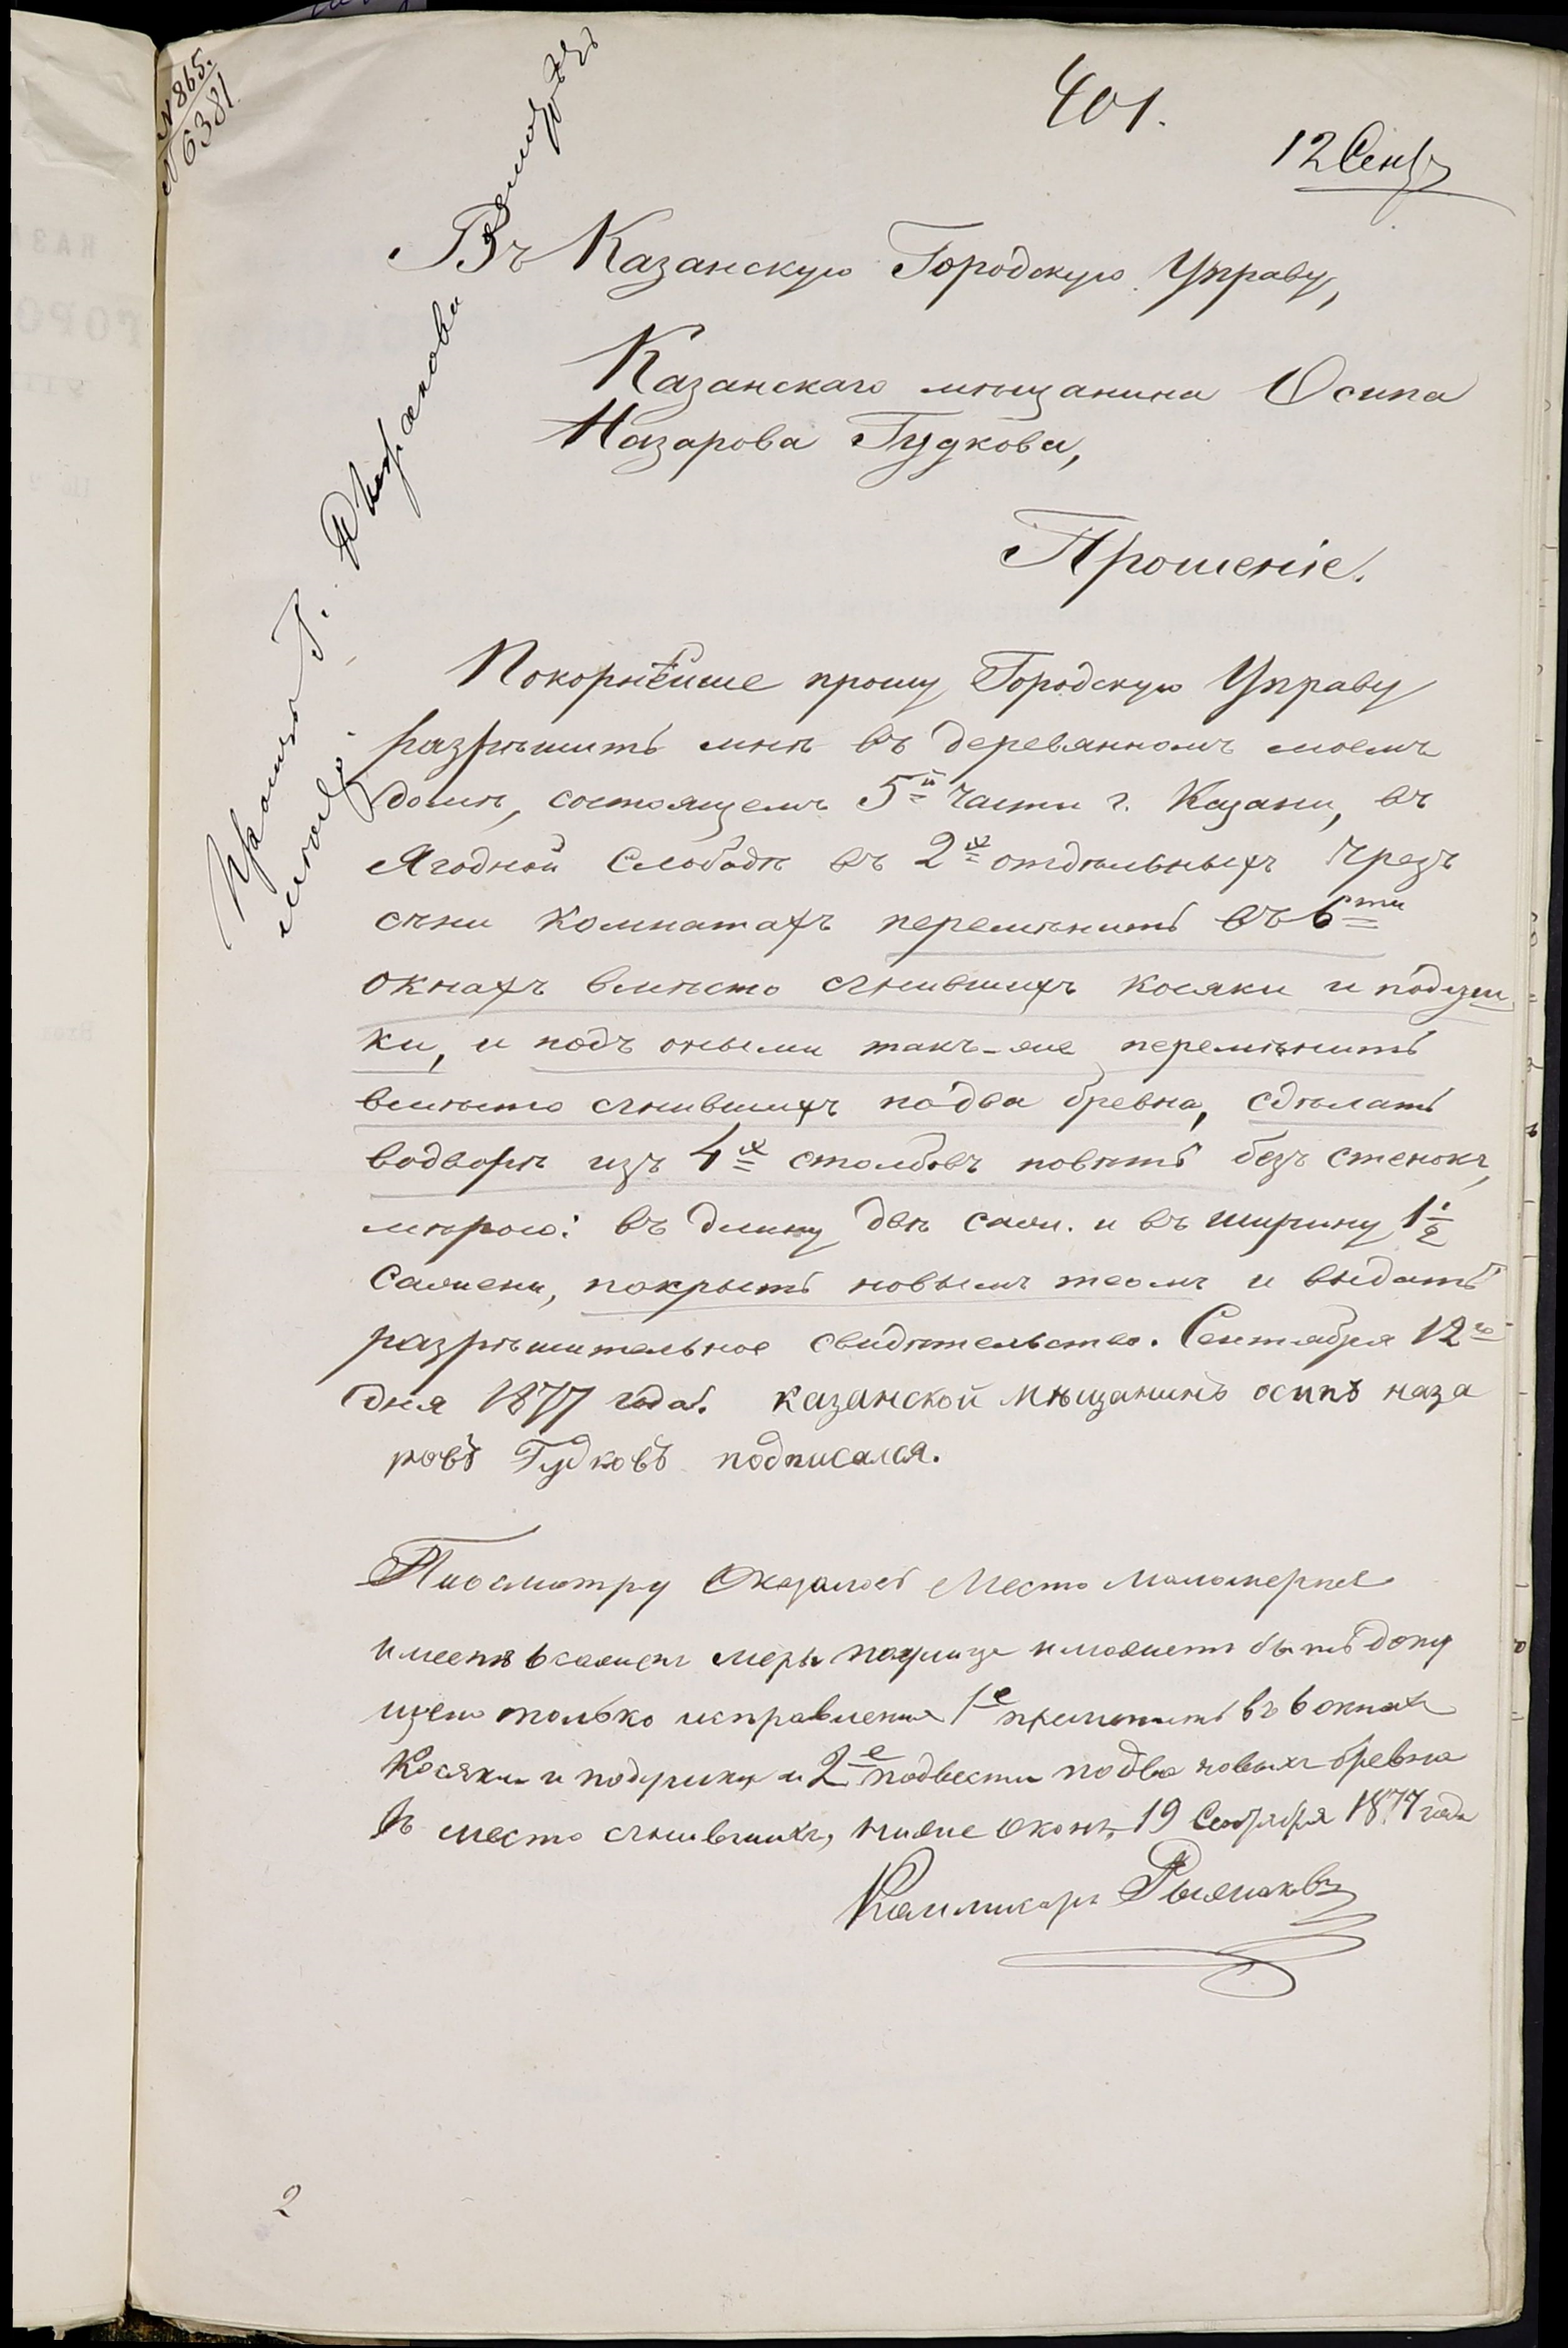 N 865.
N 6381
401.
12 Сент
Въ Казанскую Городскую Управу,
Казанскаго мѣщанина Осипа
Назарова Гудкова,
Прошеніе.
Покорнѣйше прошу Городскую Управу
разрѣшить мнѣ въ деревянномъ моемъ
домѣ, состоящемъ 5й части г. Казани, въ
Ягодной Слободѣ въ 2х отдѣльныхъ чрезъ
сѣни комнатахъ перемѣнить въ 6ти
окнахъ вмѣсто сгнившихъ косяки и подуш
ки, и подъ оными такъ-же перемѣнить
вмѣсто сгнившихъ по два бревна, сдѣлать
во дворѣ изъ 4х столбовъ повѣть безъ стенокъ,
мѣрою: въ длину двѣ саж. и въ ширину 1 1/2
сажени, покрыть новымъ тесомъ и выдать
разрѣшительное свидѣтельство. Сентября 12го
дня 1877 года. казанской мѣщанинъ осипъ наза
ровъ Гудковъ подписался.
По осмотру Оказалось Место маломерное
имеетъ 6 сажен меры по улице иможетъ быть допу
щено только исправления 1е пременить въ 6 окнах
Косяки и подушки и 2е подвести по два новыхъ бревна
в место сгнившихъ, ниже оконъ, 19 Сентября 1877 года
Рыжаковъ
2